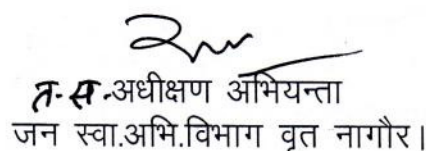 त.स.अधीक्षण अभियन्ता
जन स्वा.अभि.विभाग वृत नागौर।